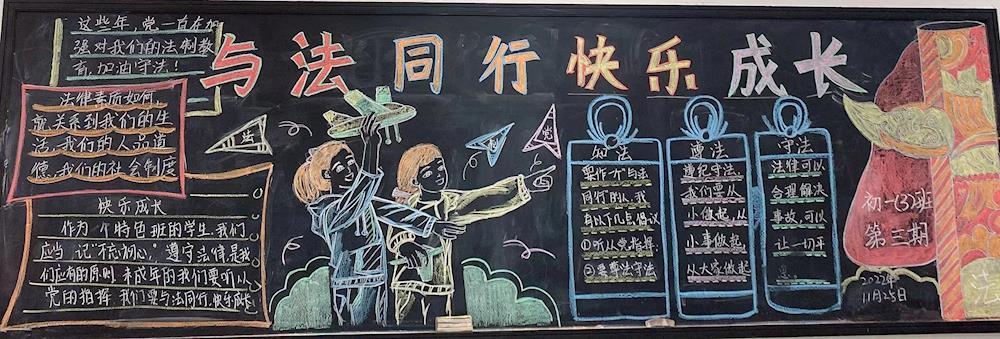 与法同行快乐成长
这些年,党一直在加
强对我们的法制教
育,加油守法!
法律素质如何,
就关系到我们的生
活,我们的人品道
德,我们的社会制度
快乐成长
作为一个特色班的学生,我们
应当记"不忘初心。"遵守法律是我
们应有的原则,未成年的我们要听从
党的指挥,我们要与法同行,快乐成长
党
知法
要作个与法
同行的人,我
有以下几点倡议
①听从党指挥
②要懂法守法
遵法
遵纪守法,
我们要从
小做起,从
小事做起,
从大家做起
守法
法律可以
合理解决
事故,可以
让一切平
初一(3)班
第三期
2022年
11月25日
法